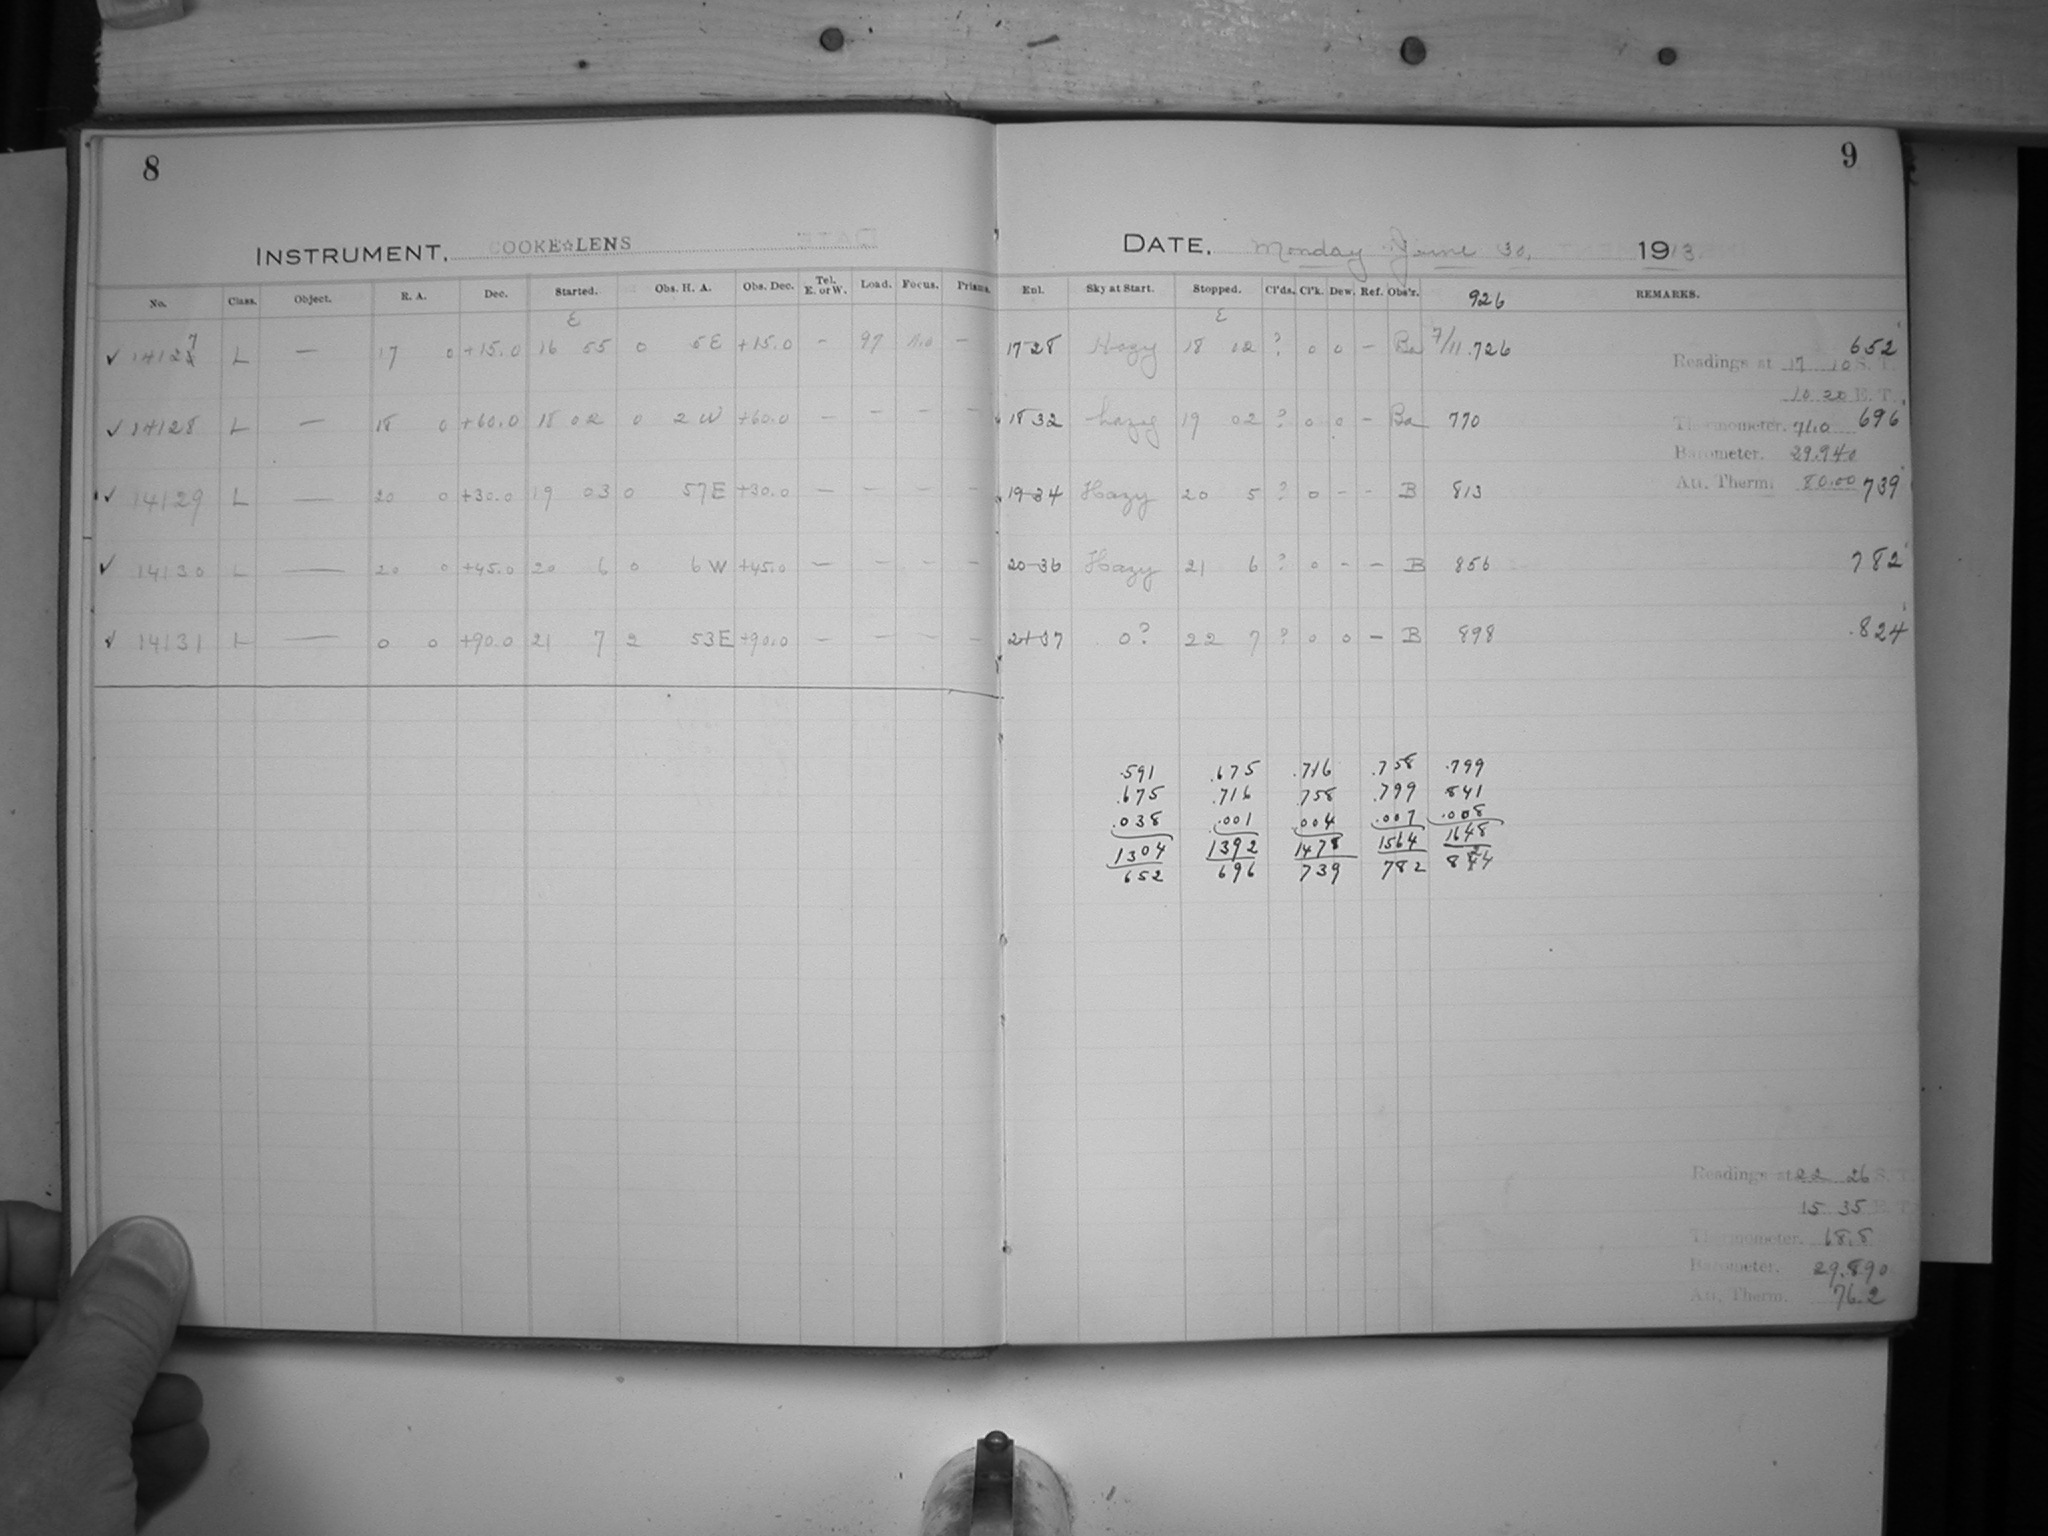 8
INSTRUMENT. COOKE☆LENS
No. Class. Object. R. A. Dec. Started. Obs. H. A. Obs. Dec. Tel. E. or W. Load. Focus. Prisms.
E
✓ 14127 L — 17 0 +15.0 16 55 0 5E +15.0 - 97 —
✓ 14128 L — 18 0 +60.0 18 02 0 2W +60.0 — — — —
✓ 14129 L — 20 0 +30.0 19 03 0 57E +30.0 — — — —
✓ 14130 L — 20 0 +45.0 20 6 0 6W +45.0 — — — —
✓ 14131 L — 0 0 +90.0 21 7 2 53E +90.0 — — — —
9
DATE. Monday June 30, 1913.
Enl. Sky at Start. Stopped. Cl'ds. Cl'k. Dew. Ref. Obs'r. 926 REMARKS.
E
17 28 Hazy 18 02 ? 0 0 - Ba 7/11.726 652
Readings at 17 10 S. T.
10 20 E. T.
18 32 hazy 19 02 ? 0 0 - Ba 770 696
Thermometer. 71.0
Barometer. 29.940
19 34 Hazy 20 5 ? 0 - - B 813 739
Att. Therm. 80.00
20 36 Hazy 21 6 ? 0 - - B 856 782
21 37 0? 22 7 ? 0 0 - B 898 .824
.591 .675 .716 .758 .799
.675 .716 .758 .799 841
.038 .001 .004 .007 .008
1304 1392 1478 1564 1648
652 696 739 782 824
Readings at 22 26 S. T.
15 35 E. T.
Thermometer. 68.8
Barometer. 29.890
Att. Therm. 76.2